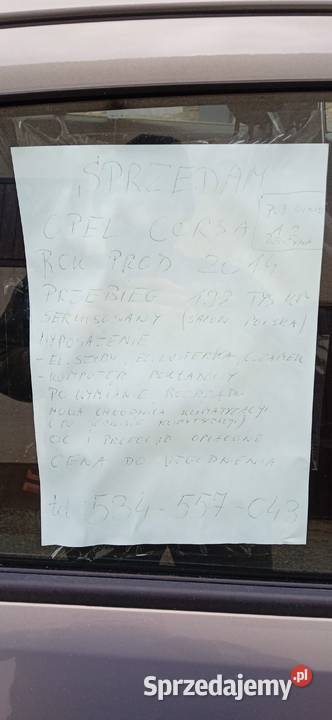 SPRZEDAM
OPEL CORSA
POJ. SILNIKA
1.2
BENZYNA
ROK PROD 2014
PRZEBIEG 198 TYS KM
SERWISOWANY (SALON POLSKA)
WYPOSAŻENIE
- EL. SZYBY, EL. LUSTERKA, C. ZAMEK
- KOMPUTER POKŁADOWY
- PO WYMIANIE ROZRZĄDU
NOWA CHŁODNICA KLIMATYZACJI
KLIMATYZACJI)
OC I PRZEGLĄD OPŁACONE
CENA DO UZGODNIENIA
tel 534-557-043
Sprzedajemy.pl